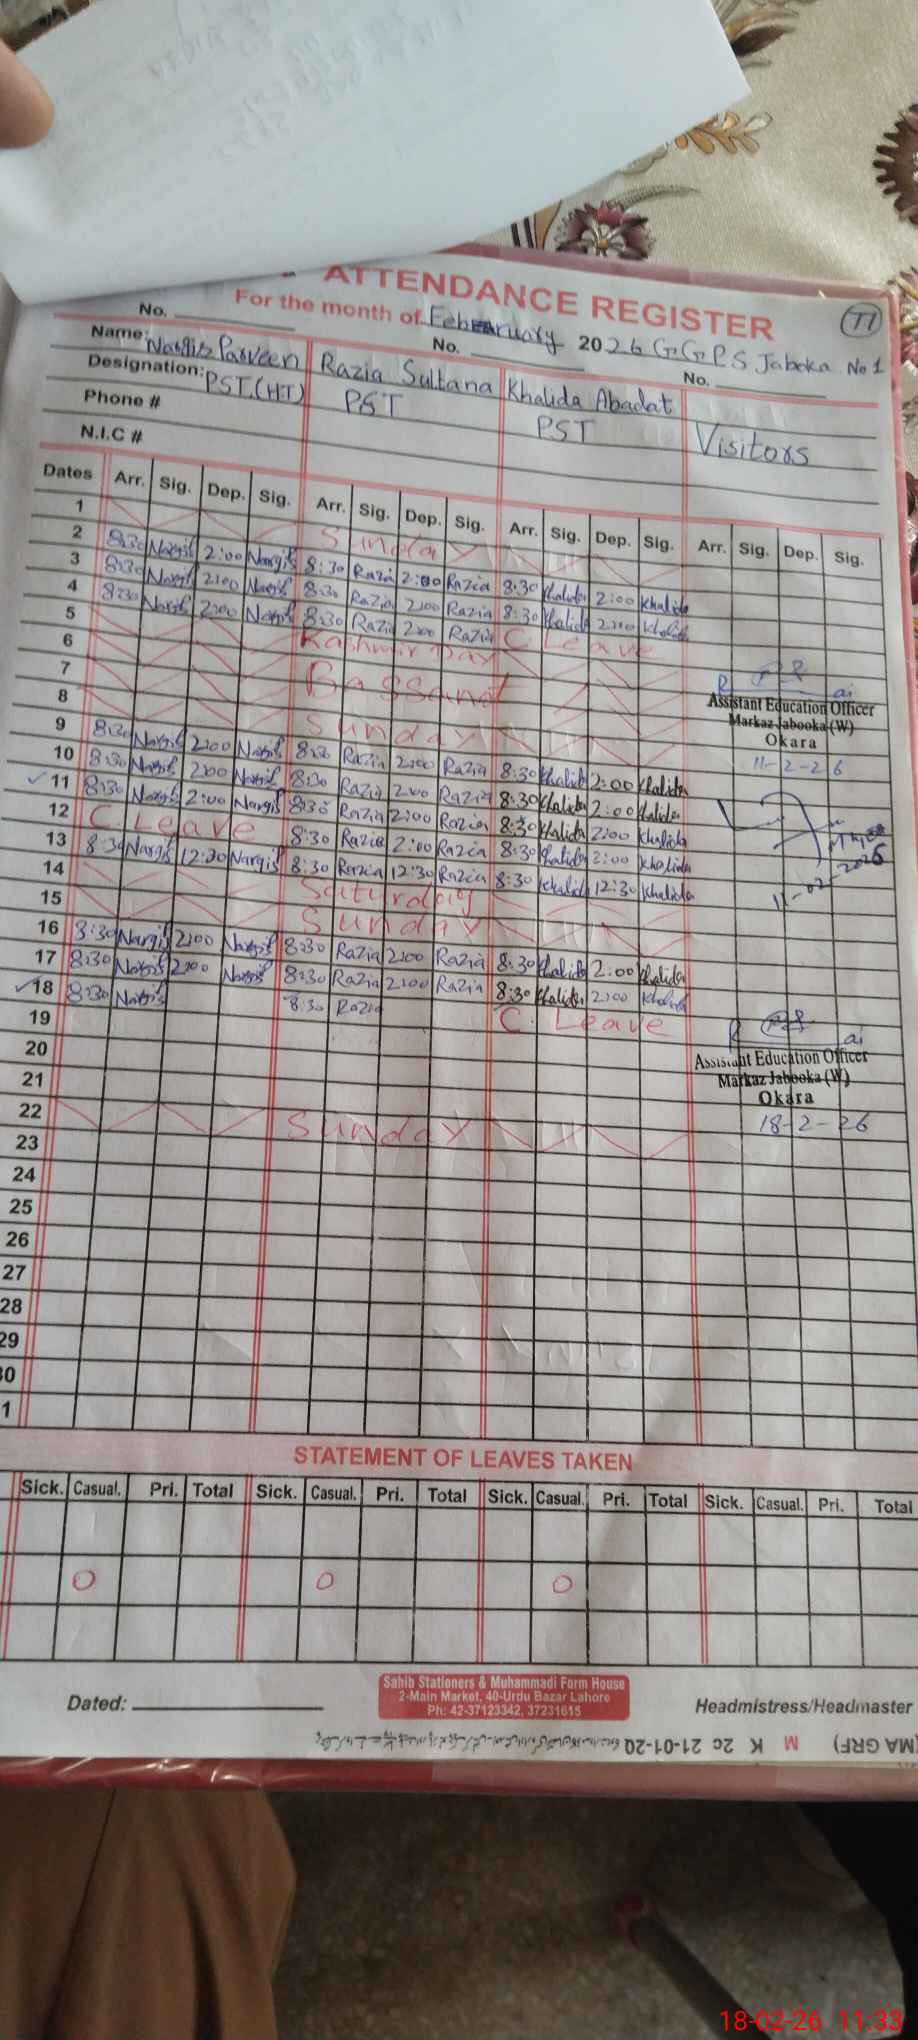 ATTENDANCE REGISTER
For the month of February 2026 GGPS Jaboka No 1
T1
No. No. No.
Name: Nargis Parveen Razia Sultana Khalida Abadat
Designation: PST.(HT) PST PST Visitors
Phone #
N.I.C #
Dates Arr. Sig. Dep. Sig. Arr. Sig. Dep. Sig. Arr. Sig. Dep. Sig. Arr. Sig. Dep. Sig.
1 Sunday
2 8:30 Nargis 2:00 Nargis 8:30 Razia 2:00 Razia 8:30 Khalida 2:00 Khalida
3 8:30 Nargis 2:00 Nargis 8:30 Razia 2:00 Razia 8:30 Khalida 2:00 Khalida
4 8:30 Nargis 2:00 Nargis 8:30 Razia 2:00 Razia C Leave
5 Kashmir Day
6 Bassanat
7
8 Sunday
Assistant Education Officer
Markaz Jabooka (W)
Okara
11-2-26
9 8:30 Nargis 2:00 Nargis 8:30 Razia 2:00 Razia 8:30 Khalida 2:00 Khalida
10 8:30 Nargis 2:00 Nargis 8:30 Razia 2:00 Razia 8:30 Khalida 2:00 Khalida
11 8:30 Nargis 2:00 Nargis 8:30 Razia 2:00 Razia 8:30 Khalida 2:00 Khalida
12 C. Leave 8:30 Razia 2:00 Razia 8:30 Khalida 2:00 Khalida
13 8:30 Nargis 12:30 Nargis 8:30 Razia 12:30 Razia 8:30 Khalida 12:30 Khalida
11-02-2026
14 Saturday
15 Sunday
16 8:30 Nargis 2:00 Nargis 8:30 Razia 2:00 Razia 8:30 Khalida 2:00 Khalida
17 8:30 Nargis 2:00 Nargis 8:30 Razia 2:00 Razia 8:30 Khalida 2:00 Khalida
18 8:30 Nargis 8:30 Razia C. Leave
19
Assistant Education Officer
Markaz Jabooka (W)
Okara
18-2-26
20
21
22 Sunday
23
24
25
26
27
28
29
30
1
STATEMENT OF LEAVES TAKEN
Sick. Casual. Pri. Total Sick. Casual. Pri. Total Sick. Casual. Pri. Total Sick. Casual. Pri. Total
0 0 0
Dated:
Sahib Stationers & Muhammadi Form House
2-Main Market, 40-Urdu Bazar Lahore
Ph: 42-37123342, 37231615
Headmistress/Headmaster
(MA GRF) M K 2c 21-01-20
18-02-26 11:33